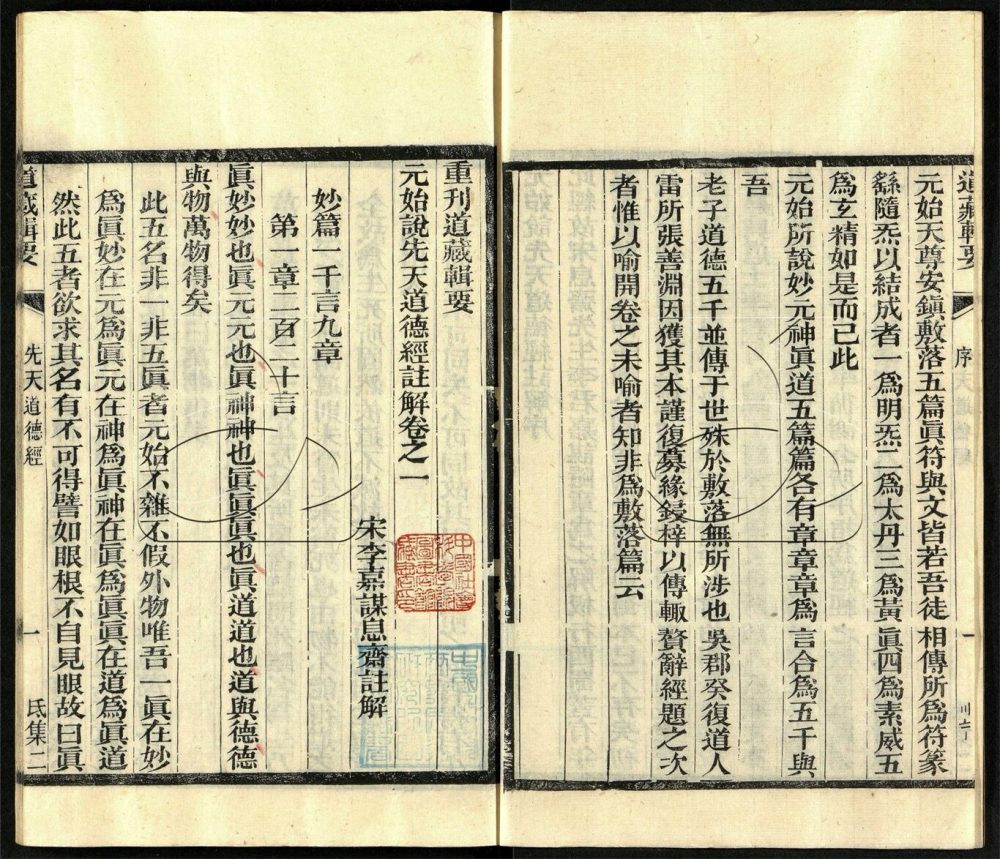 道藏輯要
序
一
元始天尊安鎮敷落五篇眞符與文皆若吾徒相傳所爲符篆
繇隨炁以結成者一爲明炁二爲太丹三爲黃眞四爲素威五
爲玄精如是而已此
元始所說妙元神眞道五篇篇各有章章章爲言合爲五千與
吾
老子道德五千並傳于世殊於敷落無所涉也吳郡癸復道人
雷所張善淵因獲其本謹復募緣鋟梓以傳輒贅辭經題之次
者惟以喻開卷之未喻者知非爲敷落篇云
重刊道藏輯要
元始說先天道德經註解卷之一
宋李嘉謀息齋註解
妙篇一千言九章
第一章二百二十言
眞妙妙也眞元元也眞神神也眞眞眞也眞道道也道與德德
與物萬物得矣
此五名非一非五眞者元始不雜不假外物唯吾一眞在妙
爲眞妙在元爲眞元在神爲眞神在眞爲眞眞在道爲眞道
然此五者欲求其名有不可得譬如眼根不自見眼故曰眞
道藏輯要
先天道德經
一
氐集二